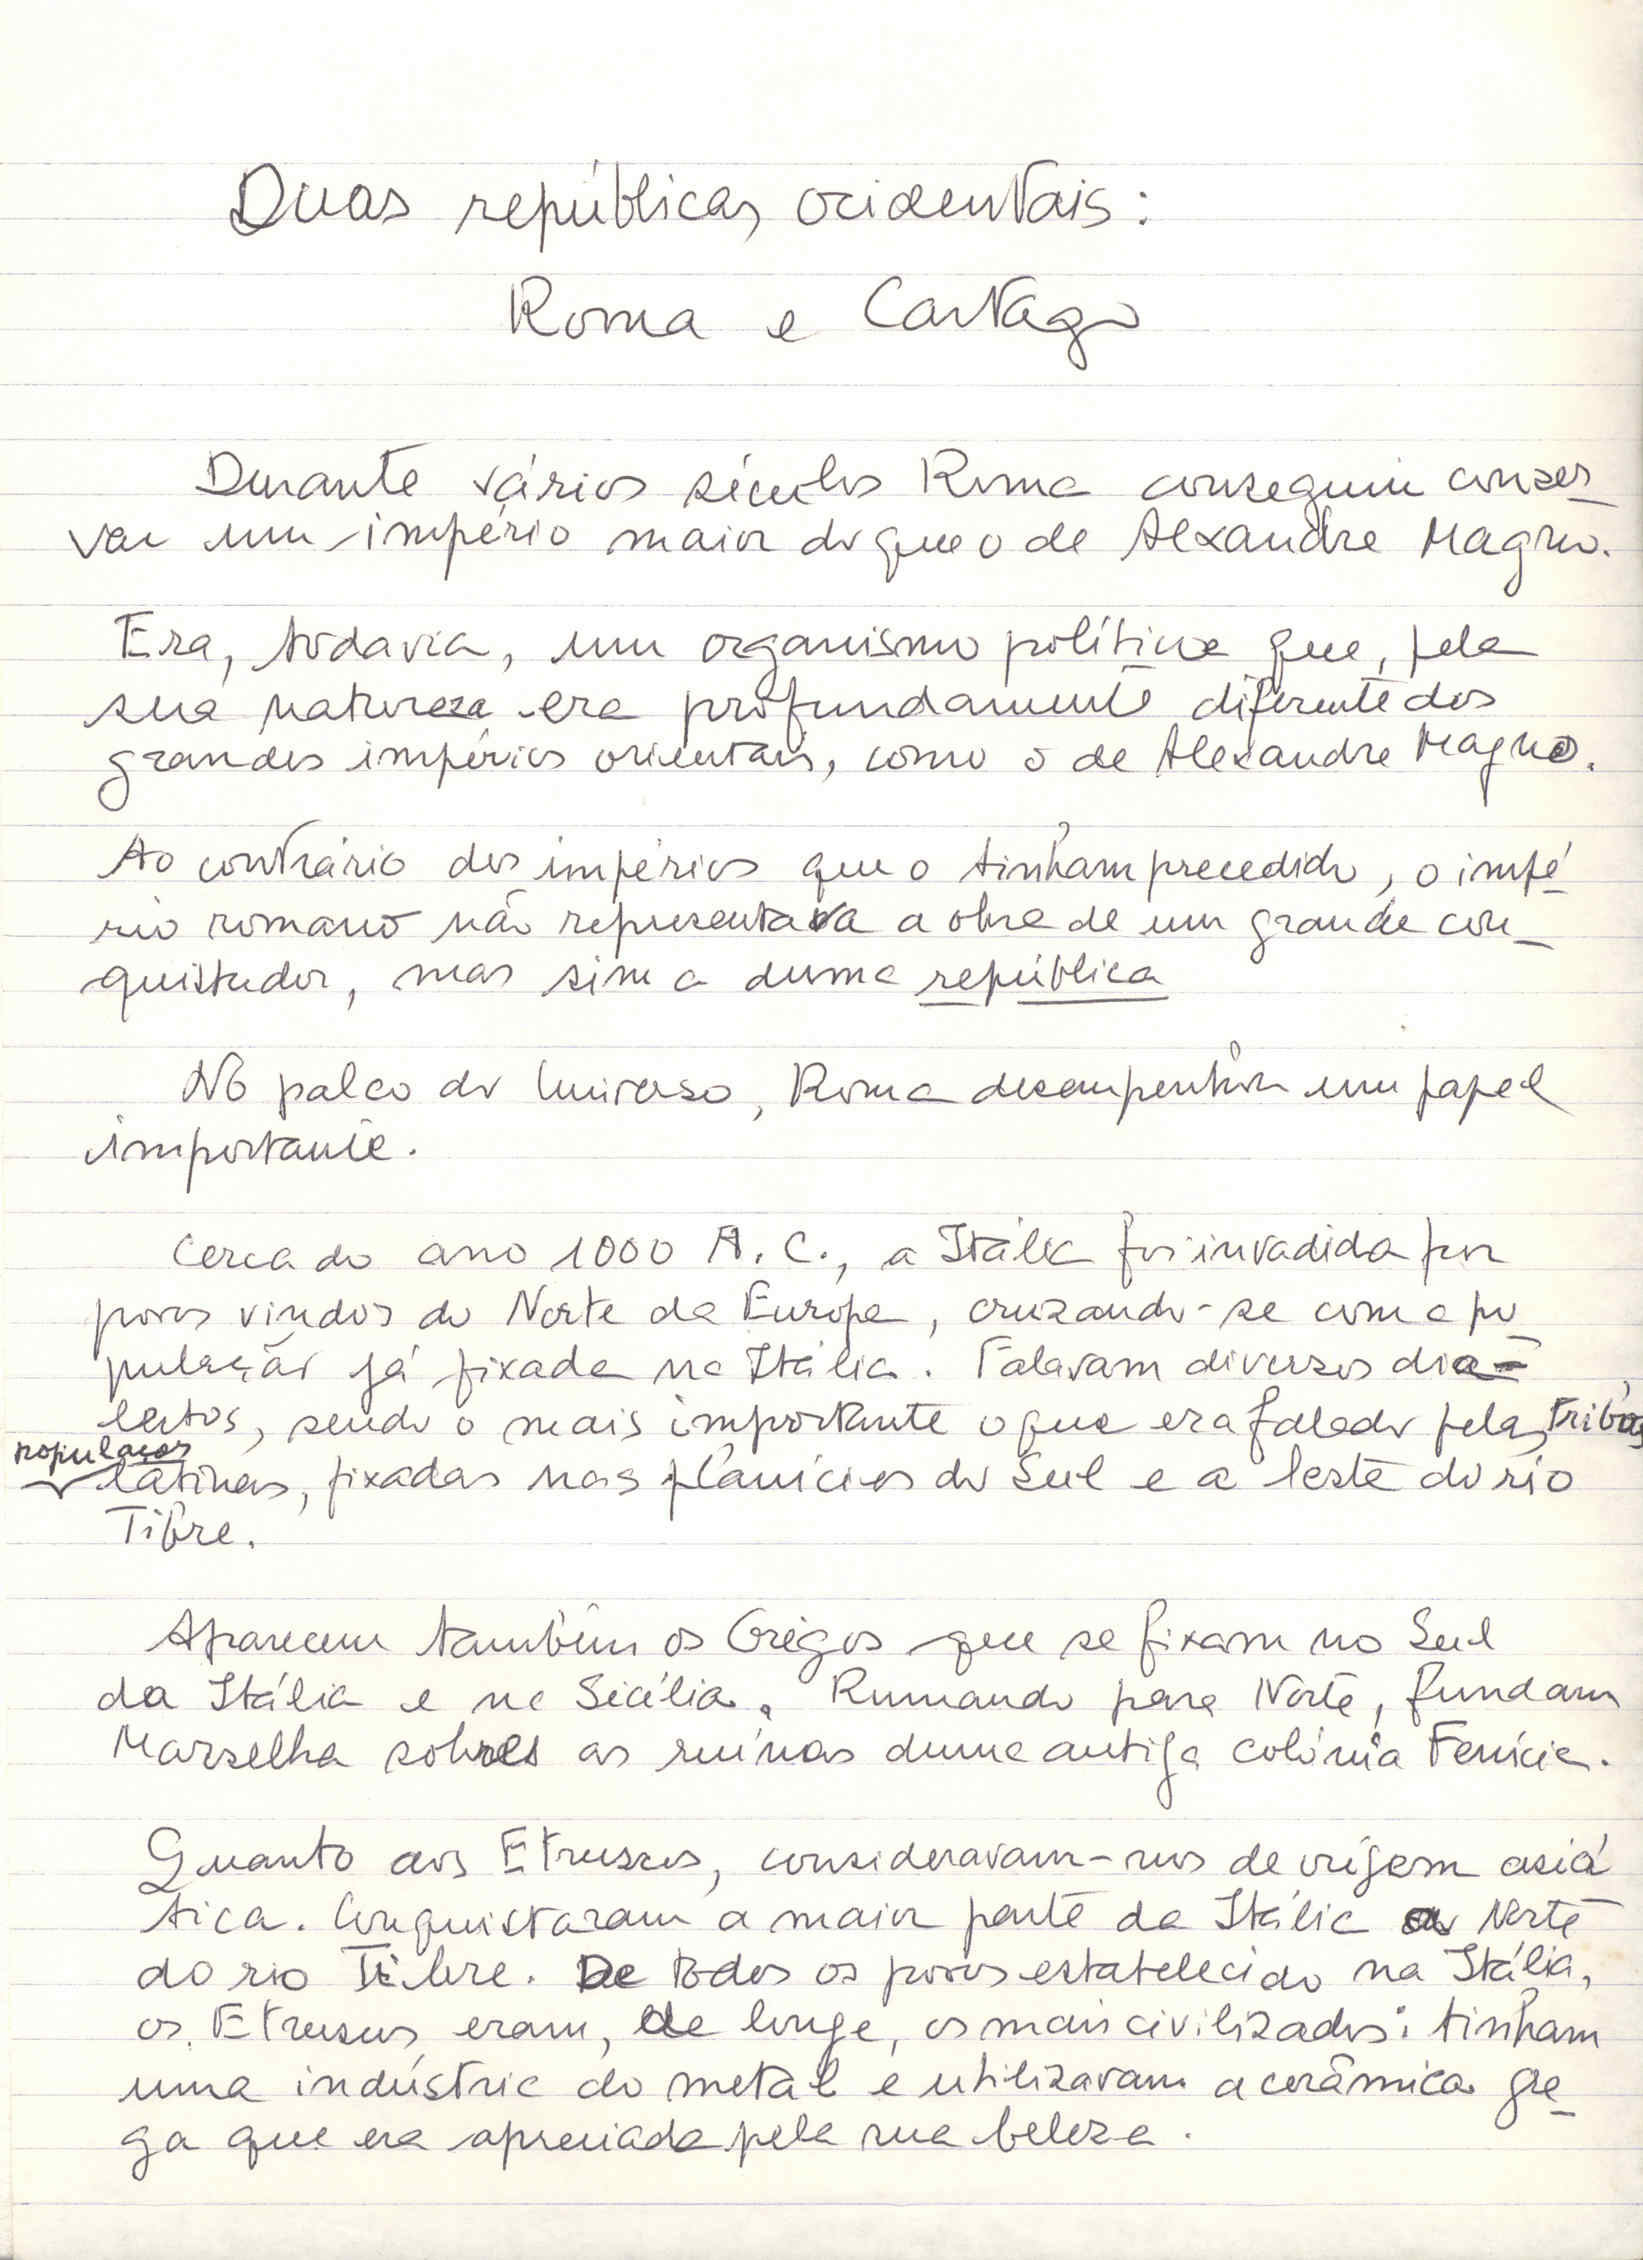 Duas repúblicas ocidentais:
Roma e Cartago
Durante vários séculos Roma conseguiu conser_
var um império maior do que o de Alexandre Magno.
Era, todavia, um organismo político que, pela
sua natureza era profundamente diferente dos
grandes impérios orientais, como o de Alexandre Magno.
Ao contrário dos impérios que o tinham precedido, o impé_
rio romano não representava a obra de um grande con_
quistador, mas sim a duma república
No palco do Universo, Roma desempenhou um papel
importante.
Cerca do ano 1000 A. C., a Itália foi invadida por
povos vindos do Norte da Europa, cruzando-se com a po_
pulação já fixada na Itália. Falavam diversos dia-
lectos, sendo o mais importante o que era falado pelas tribos
populações
latinas, fixadas nas planícies do Sul e a leste do rio
Tibre.
Aparecem também os Gregos que se fixam no Sul
da Itália e na Sicília. Rumando para Norte, fundam
Marselha sobre as ruínas duma antiga colónia Fenícia.
Quanto aos Etruscos, consideravam-nos de origem asiá
tica. Conquistaram a maior parte da Itália ao Norte
do rio Tibre. De todos os povos estabelecido na Itália,
os Etruscos eram, de longe, os mais civilizados: tinham
uma indústria do metal e utilizavam a cerâmica gre_
ga que era apreciada pela sua beleza.